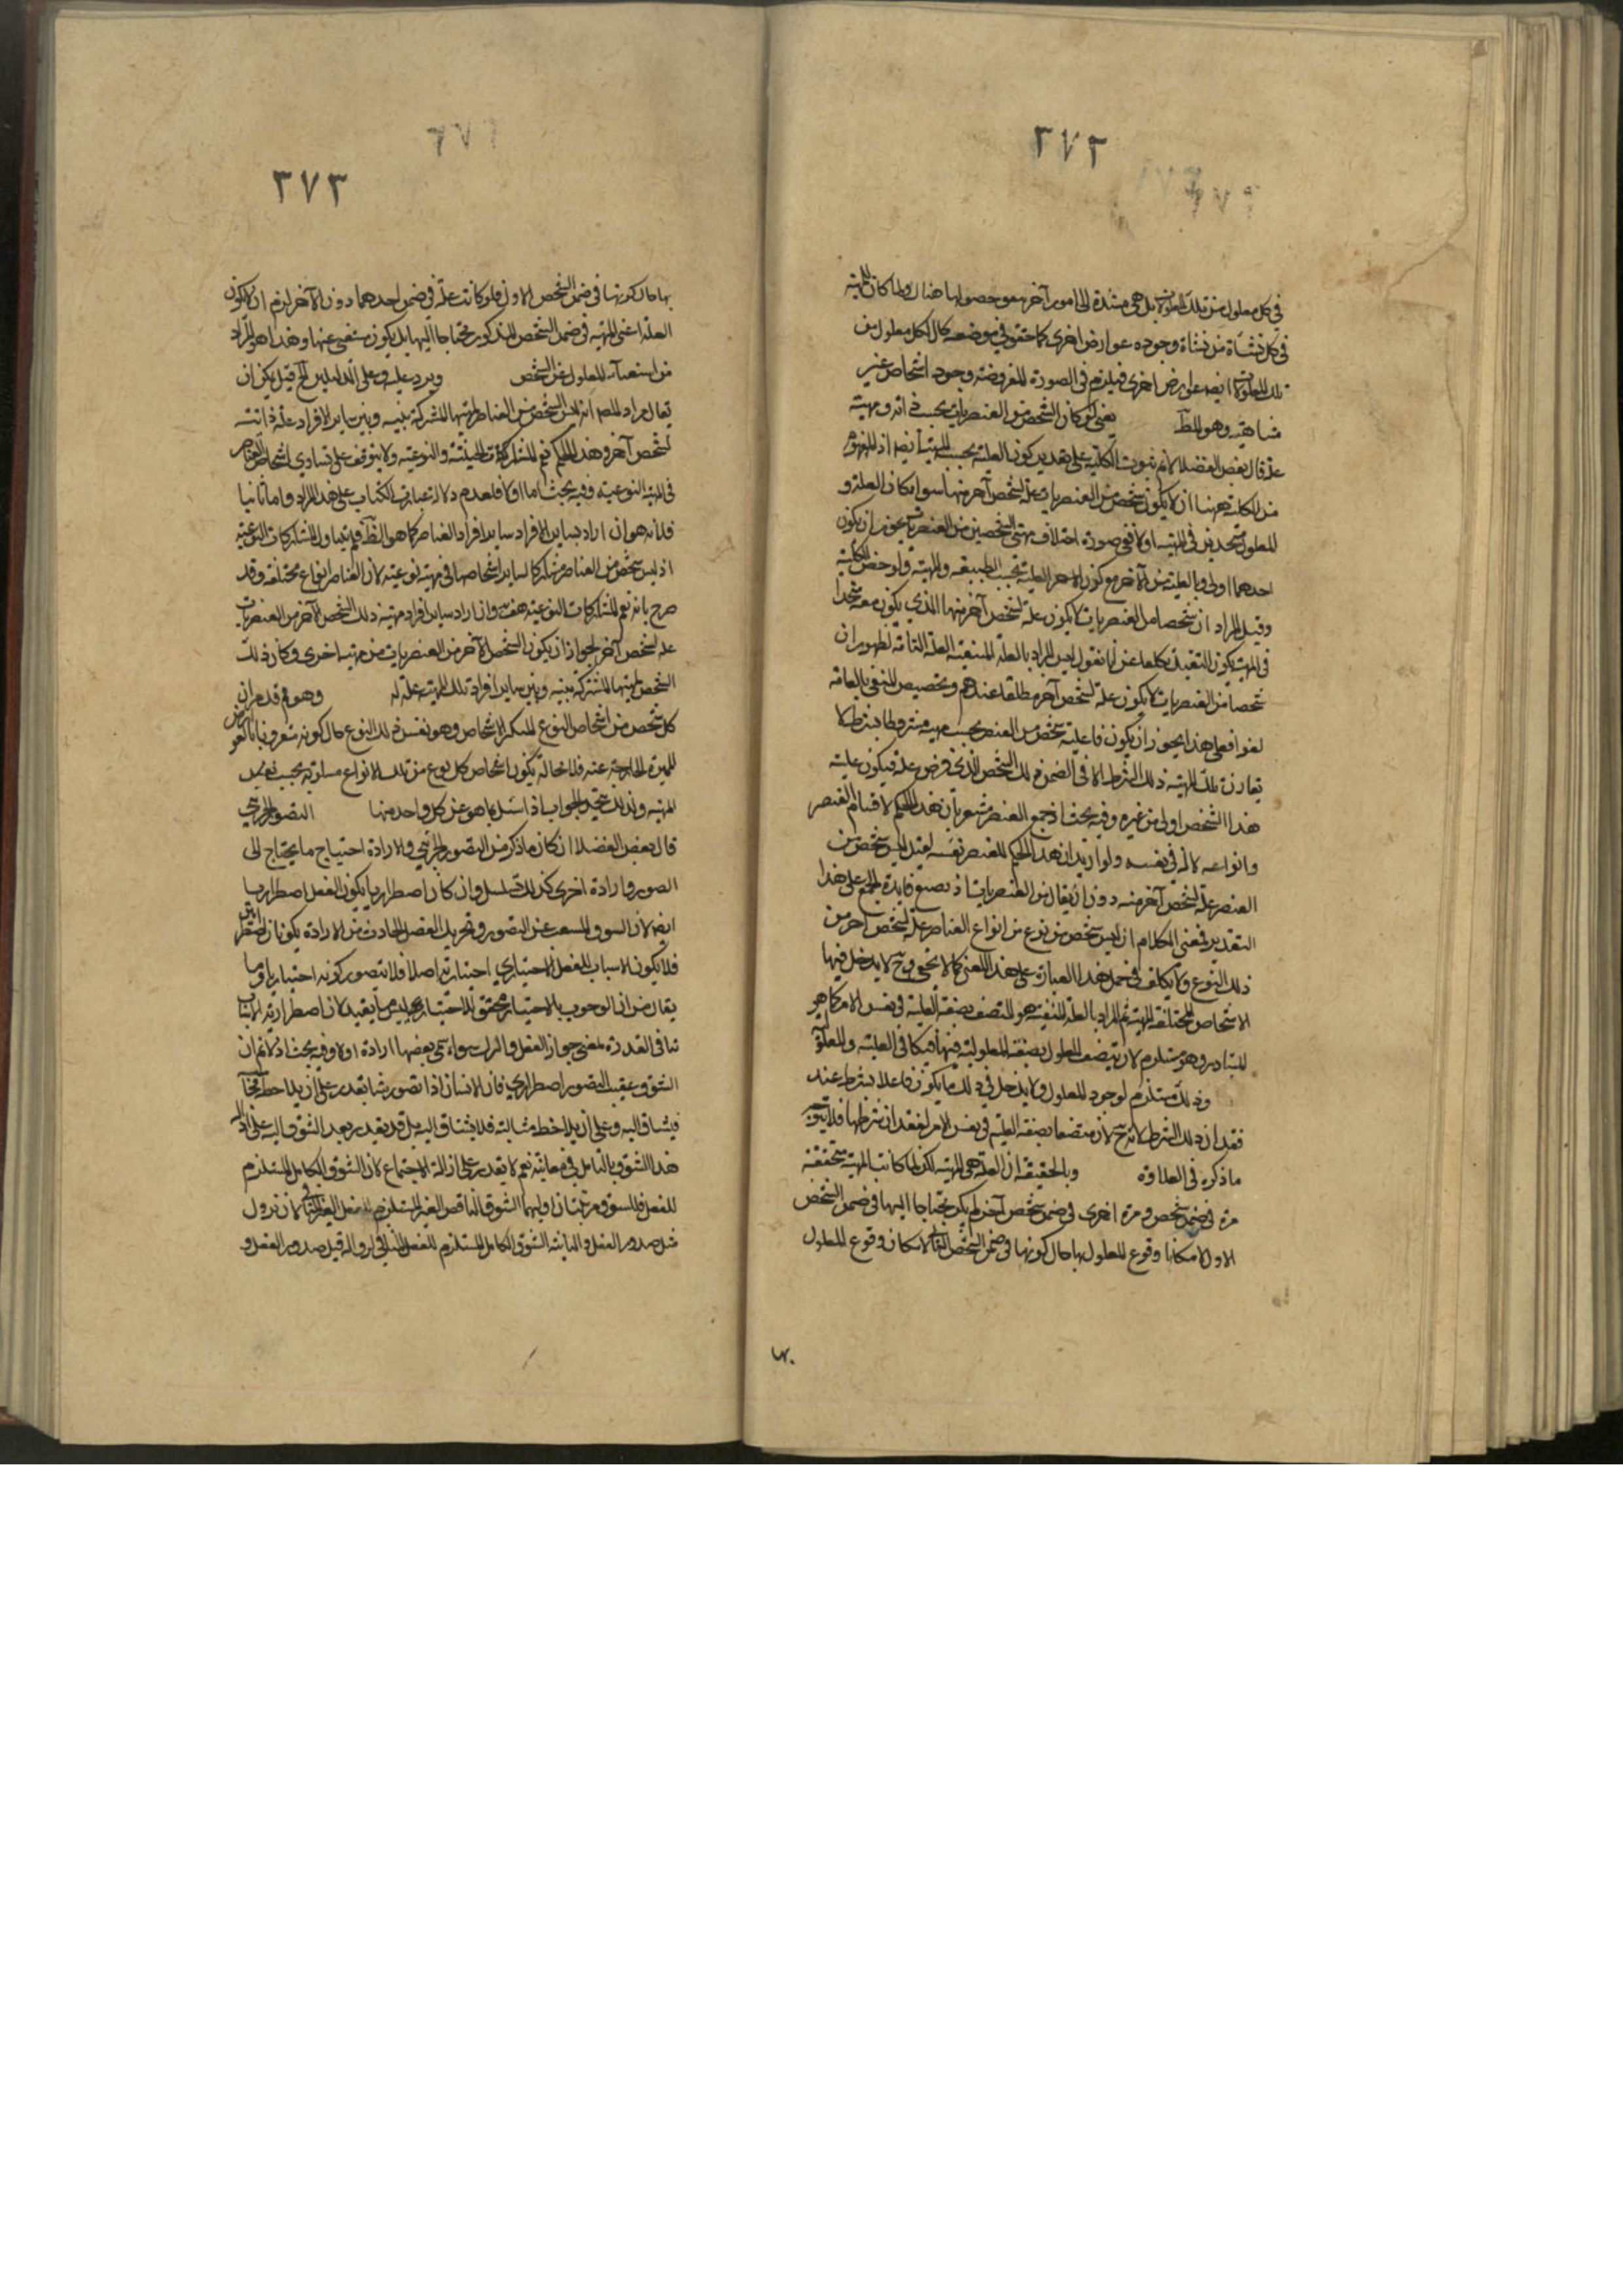 ٢٧٢
في كل معلول من تلك المعلولات بل هي مستندة الى امور آخر هو حصولها هناك ولما كان للمهية
في كل نشأة من نشاة وجوده عوارض اخرى كما حقق في موضعه كان لكل معلول من
تلك المعلولات ايضا عوارض اخرى فيلزم في الصورة المفروضة وجود اشخاص غير
متناهية وهو المط يعني لو كان الشخص من العنصريات بحسب ذاته ومهيته
علة قال بعض الفضلا لانم ثبوت الكلية على تقدير كون العلة بحسب المهية ايضا اذ المفهوم
من الكلية ههنا ان لا يكون شخص من العنصريات علة لشخص آخر منها سوا كان العلة و
المعلول متحدين في المهية اولا ففي صورة اختلاف مهيتي الشخصين من العنصريات يجوز ان يكون
احدهما اولى بالعلية من الآخر مع كون الامر العلية بحسب الطبيعة والمهية ولو خص الكلية
وقيل المراد ان شخصا من العنصريات لا يكون علة لشخص آخر منها الذي يكون معه متحدا
في المهية يكون التقييد بكلها عن لما نقول ليس المراد بالعلة المنفية العلة التامة لظهور ان
شخصا من العنصريات لا يكون علة لشخص آخر مطلقا عندهم وتخصيص المنفي بالعامة
لغو فعلى هذا يجوز ان يكون فاعلية شخص من العنصر بحسب مهية مشروطا بشرط لا
يقارن تلك المهية ذلك الشرط الا في الضمن ذلك الشخص الذي فرض علة فيكون علية
هذا الشخص اولى من غيره وفيه بحث اذ جمع العنصر مشعر بان هذا الحكم لاقسام العنصر
وانواعه لا له في نفسه ولو اريد ان هذا الحكم للعنصر نفسه لقيل ليس شخص من
العنصر علة لشخص آخر منه دون ان يقال من العنصريات اذ يصيع فايدة الجمع على هذا
التقدير فمعنى الكلام ان ليس شخص من نوع من انواع العناصر علة لشخص آخر من
ذلك النوع ولا تكلف في حمل هذا العبارة على هذا المعنى كما لا يخفى وح لا يدخل فيها
الاشخاص المختلفة المهية ثم المراد بالعلة المنفية هو المتصف بصفة العلية في نفس الامر كما هو
المتبادر وهو مستلزم لان يتصف المعلول بصفة المعلولية فيها في العلية والمعلولية
وذلك مستلزم لوجود المعلول ولا يدخل في ذلك ما يكون فاعلا بشرط عند
فقدان ذلك الشرط لانه ح لا متصفا بصفة العلية في نفس الامر لفقدان شرطها فلا يتوجه
ما ذكره في العلاوة وبالحقيقة ان العلة هي المهية لكن لما كانت المهية متحققة
مرة في ضمن شخص ومرة اخرى في ضمن شخص آخر لم يكن محتاجا اليها في ضمن الشخص
الاول لامكان وقوع المعلول بها حال كونها في ضمن الشخص الثاني لامكان وقوع المعلول
٢٧٣
بها حال كونها في ضمن الشخص الاول فلو كانت علة في ضمن احدهما دون الآخر لزم ان لا يكون
العلة اعني المهية في ضمن الشخص المذكور محتاجا اليها بل يكون مستغني عنها وهذا هو المراد
من استغناء المعلول عن الشخص ويرد عليه وعلى الدليلين آلخ قيل يمكن ان
يقال مراد المص انه ليس الشخص من العناصر لمهيتها المشتركة بينه وبين ساير الافراد علة ذاتية
لشخص آخر وهذا الحكم يعم المشاركات الجنسية والنوعية ولا يتوقف على تساوي اشخاص العناصر
في المهية النوعية وفيه بحث اما اولا فلعدم دلالة عبارة الكتاب على هذا المراد واما ثانيا
فلانه هو ان اراد بساير الافراد ساير افراد العناصر كما هو الظ فلم يتناول المشاركات النوعية
اذ ليس شخص من العناصر مشاركا لساير اشخاصها في مهية نوعية لان العناصر انواع مختلفة وقد
صرح بانه يعم المشاركات النوعية هف وان اراد ساير افراد مهية ذلك الشخص الآخر من العنصريات
علة لشخص آخر لجواز ان يكون الشخص الآخر من العنصريات من مهية اخرى وكان ذلك
الشخص بمهيتها المشتركة بينه وبين ساير افراد تلك المهية علة له وهو م قد مر ان
كل شخص من اشخاص النوع المتكثر الاشخاص وهو نفس ذلك النوع حال كونه مقرونا بالعوارض
المميزة الخارجة عنه فلا محالة يكون اشخاص كل نوع من تلك الانواع مساوية بحسب نفس
المهية ولذلك يتحد الجواب اذا سئل بما هو عن كل واحد منها التصور الجزئي
قال بعض الفضلا ان كان ما ذكر من التصور الجزئي والارادة احتياج ما يحتاج الى
الصور وارادة اخرى كذلك تسلسل وان كان اضطراريا يكون الفعل اضطراريا
ايضا لان الشوق المنبعث عن التصور وتحريك العضل الحادث من الارادة يكونان اضطراريين
فلا يكون الاسباب للفعل الاختياري اختيارية اصلا فلا يتصور كونه اختياريا وما
يقال من ان الوجوب بالاختيار محقق للاختيار ليس مفيد لان اضطرارية الاسباب
تنافي القدرة بمعنى جواز الفعل والترك سواء سمي بعضها ارادة اولا وفيه بحث اذ لانم ان
الشوق عقيب التصور اضطراري فان الانسان اذا تصور شيئا يقدر على ان يلاحظ
فيشتاق اليه وعلى ان يلاحظ مثالبه فلا يشتاق اليه بل قد يقدر بعد الشوق اليه على ازالة
هذا الشوق بالتامل في معايبه نعم لا يقدر على ازالة الاجتماع لان الشوق الكامل المستلزم
للفعل فللشوق مرتبتان اوليهما الشوق الناقص الغير المستلزم للفعل لان تزول
قبل صدور الفعل والثانية الشوق الكامل المستلزم للفعل زواله قبل صدور الفعل و